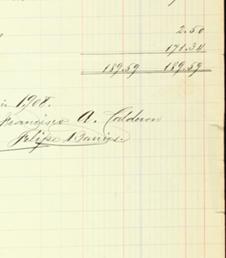 2.50
171.34
189.59 189.59
in 1908.
Francisco A. Calderon
Felipe